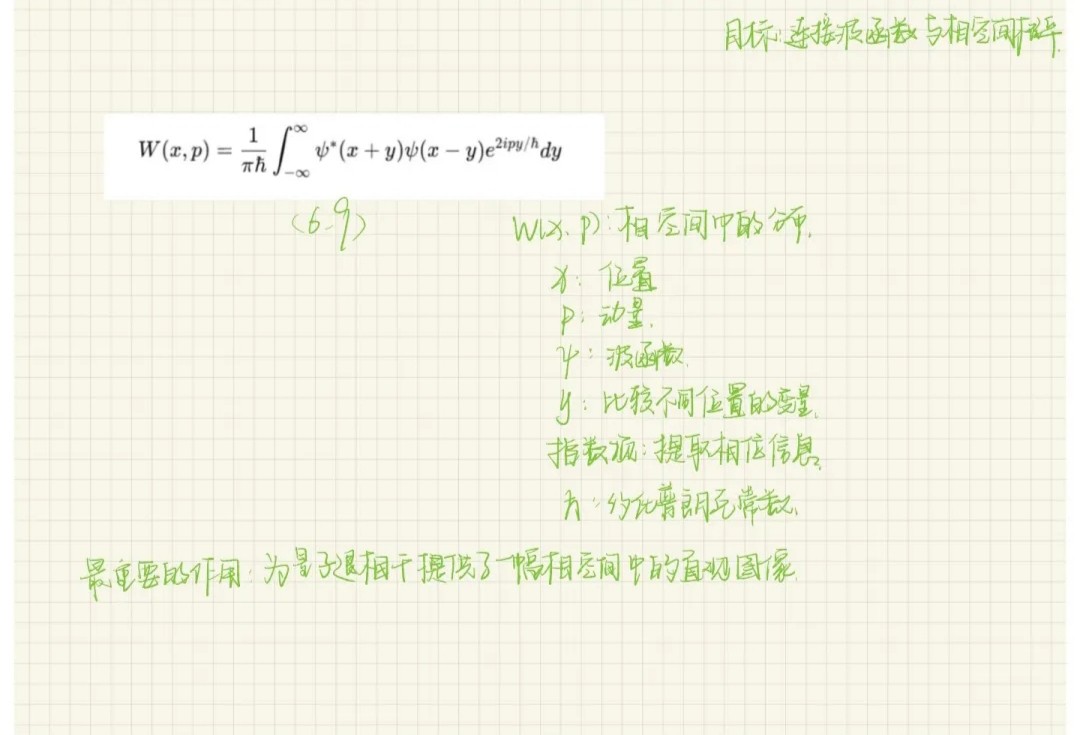 目标:连接波函数与相空间概率
W(x,p) = \frac{1}{\pi\hbar} \int_{-\infty}^{\infty} \psi^*(x+y)\psi(x-y)e^{2ipy/\hbar}dy
(6.9)
W(x,p):相空间中的分布.
x:位置
p:动量.
ψ:波函数.
y:比较不同位置的变量.
指数项:提取相位信息.
ħ:约化普朗克常数.
最重要的作用:为量子退相干提供了一幅相空间中的直观图像